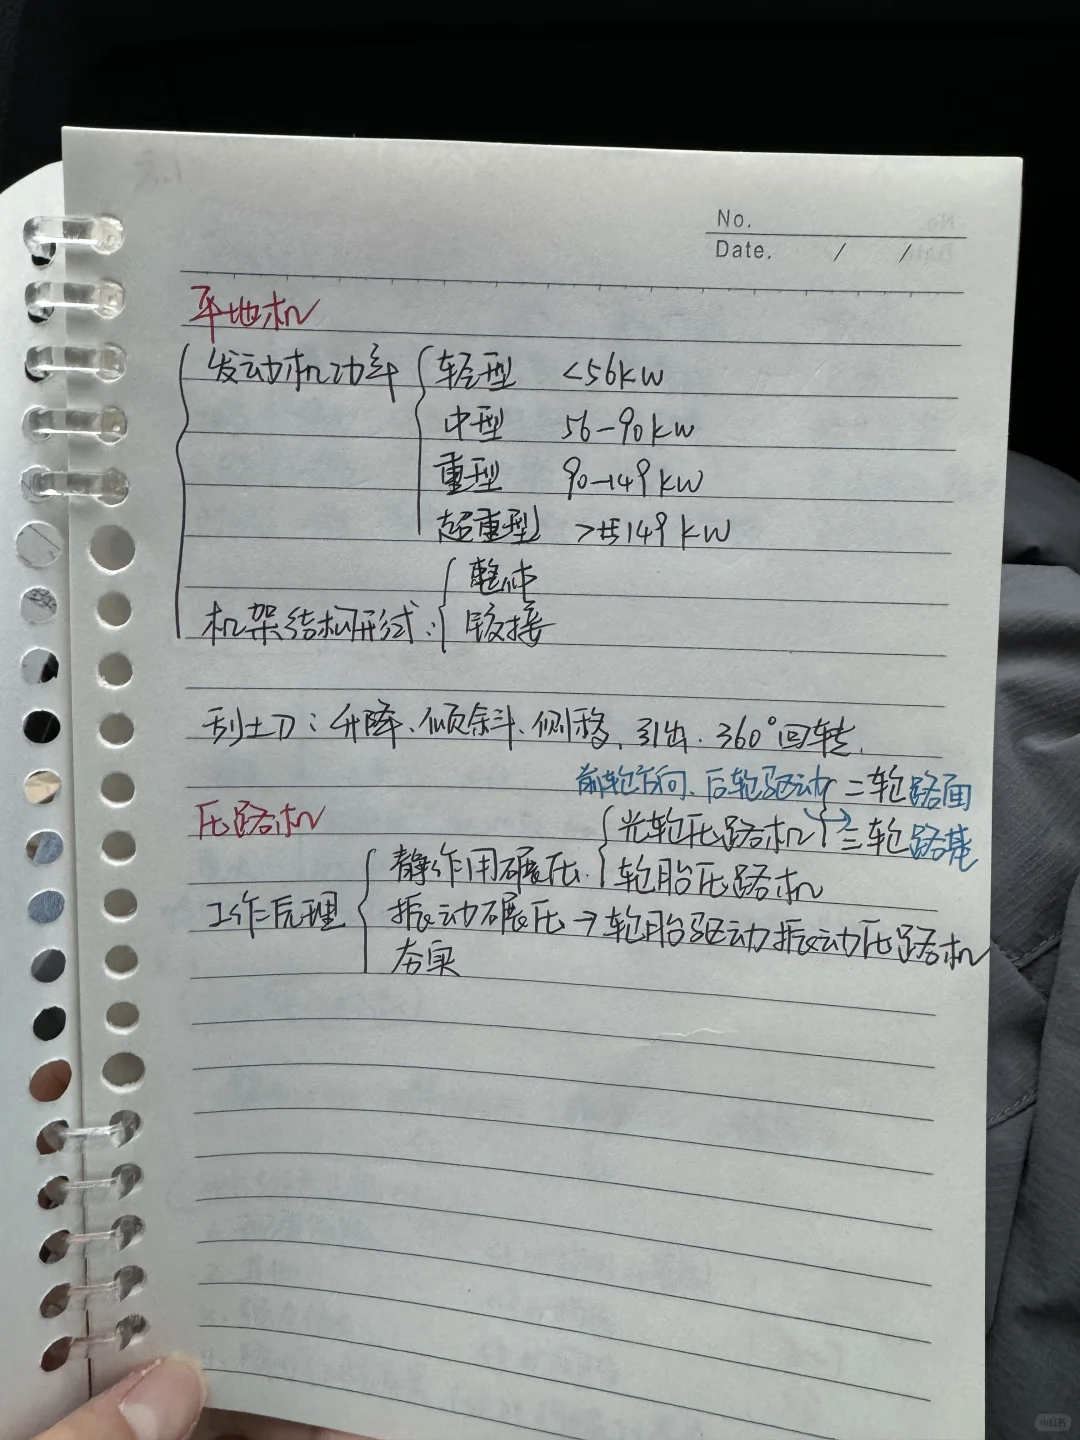 No.
Date. / /
平地机
发动机功率 轻型 <56kW
中型 56-90kW
重型 90-149kW
超重型 >149kW
机架结构形式: 整体
铰接
刮土刀:升降、倾斜、侧移、引出、360°回转.
前轮方向、后轮驱动 二轮路面
压路机
光轮压路机 三轮路基
静作用碾压. 轮胎压路机
工作原理 振动碾压→轮胎驱动振动压路机
夯实
小红书